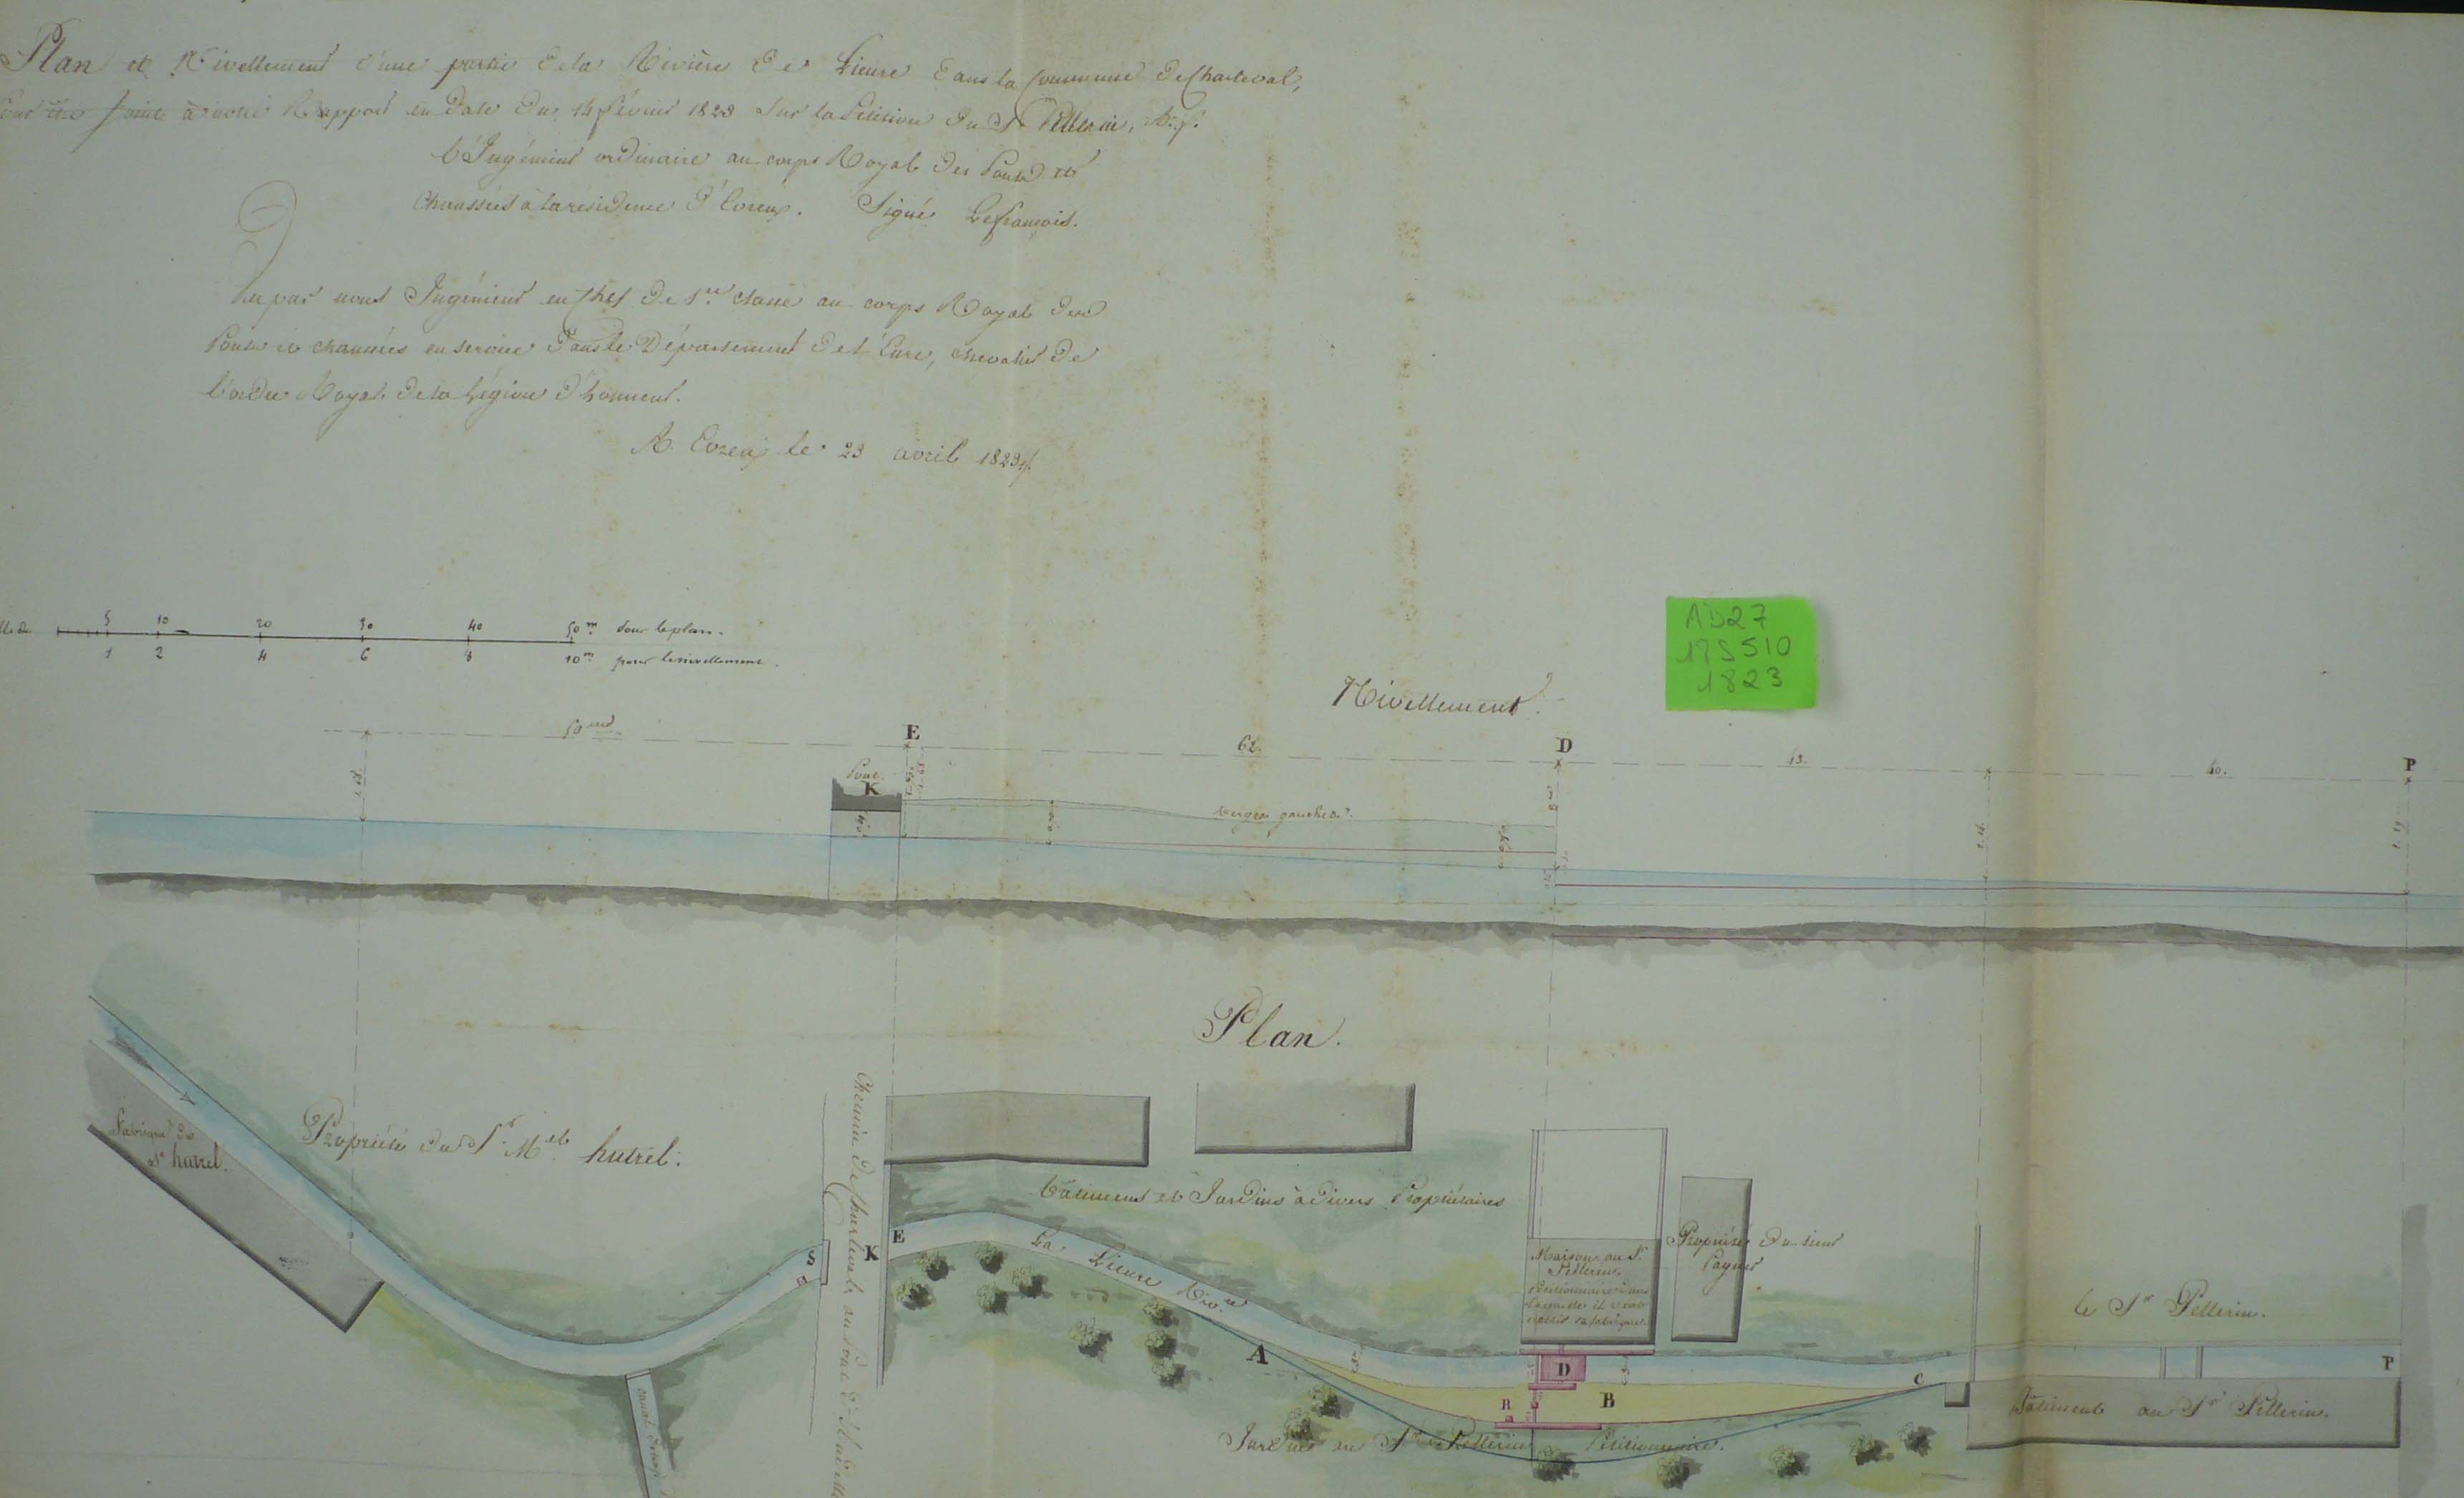 Plan et Nivellement d'une partie de la Rivière de Lieure dans la Commune de Charleval,
pour être joint à notre Rapport en date du 14 février 1823 sur la Pétition du Sr Pellerin,
L'Ingénieur ordinaire au corps Royal des Ponts et
Chaussées à la résidence d'Evreux. Signé Lefrançois.
Vu par nous Ingénieur en Chef de 1re classe au corps Royal des
Ponts et chaussées en service dans le Département de l'Eure, chevalier de
l'ordre Royal de la Légion d'honneur.
A Evreux le 23 avril 1823
5 10 20 30 40 50m pour le plan.
1 2 4 6 8 10m pour le nivellement.
AD27
17S510
1823
Nivellement.
50
E
62.
D
43.
40.
P
Pont.
K
berges gauches
Plan.
Fabrique du
Sr hutrel.
Propriété du Sr Mel hutrel.
Chemin de Charleval au Pont
Bâtiments et Jardins à divers Propriétaires
S
K
E
La Lieure Riv.re
A
Maison au Sr
Pellerin
Pétitionnaire dans
laquelle il veut
établir sa fabrique
Propriété du sieur
le Sr Pellerin.
D
R
B
C
P
Jardin au Sr Pellerin Pétitionnaire.
Bâtiments au Sr Pellerin.
canal